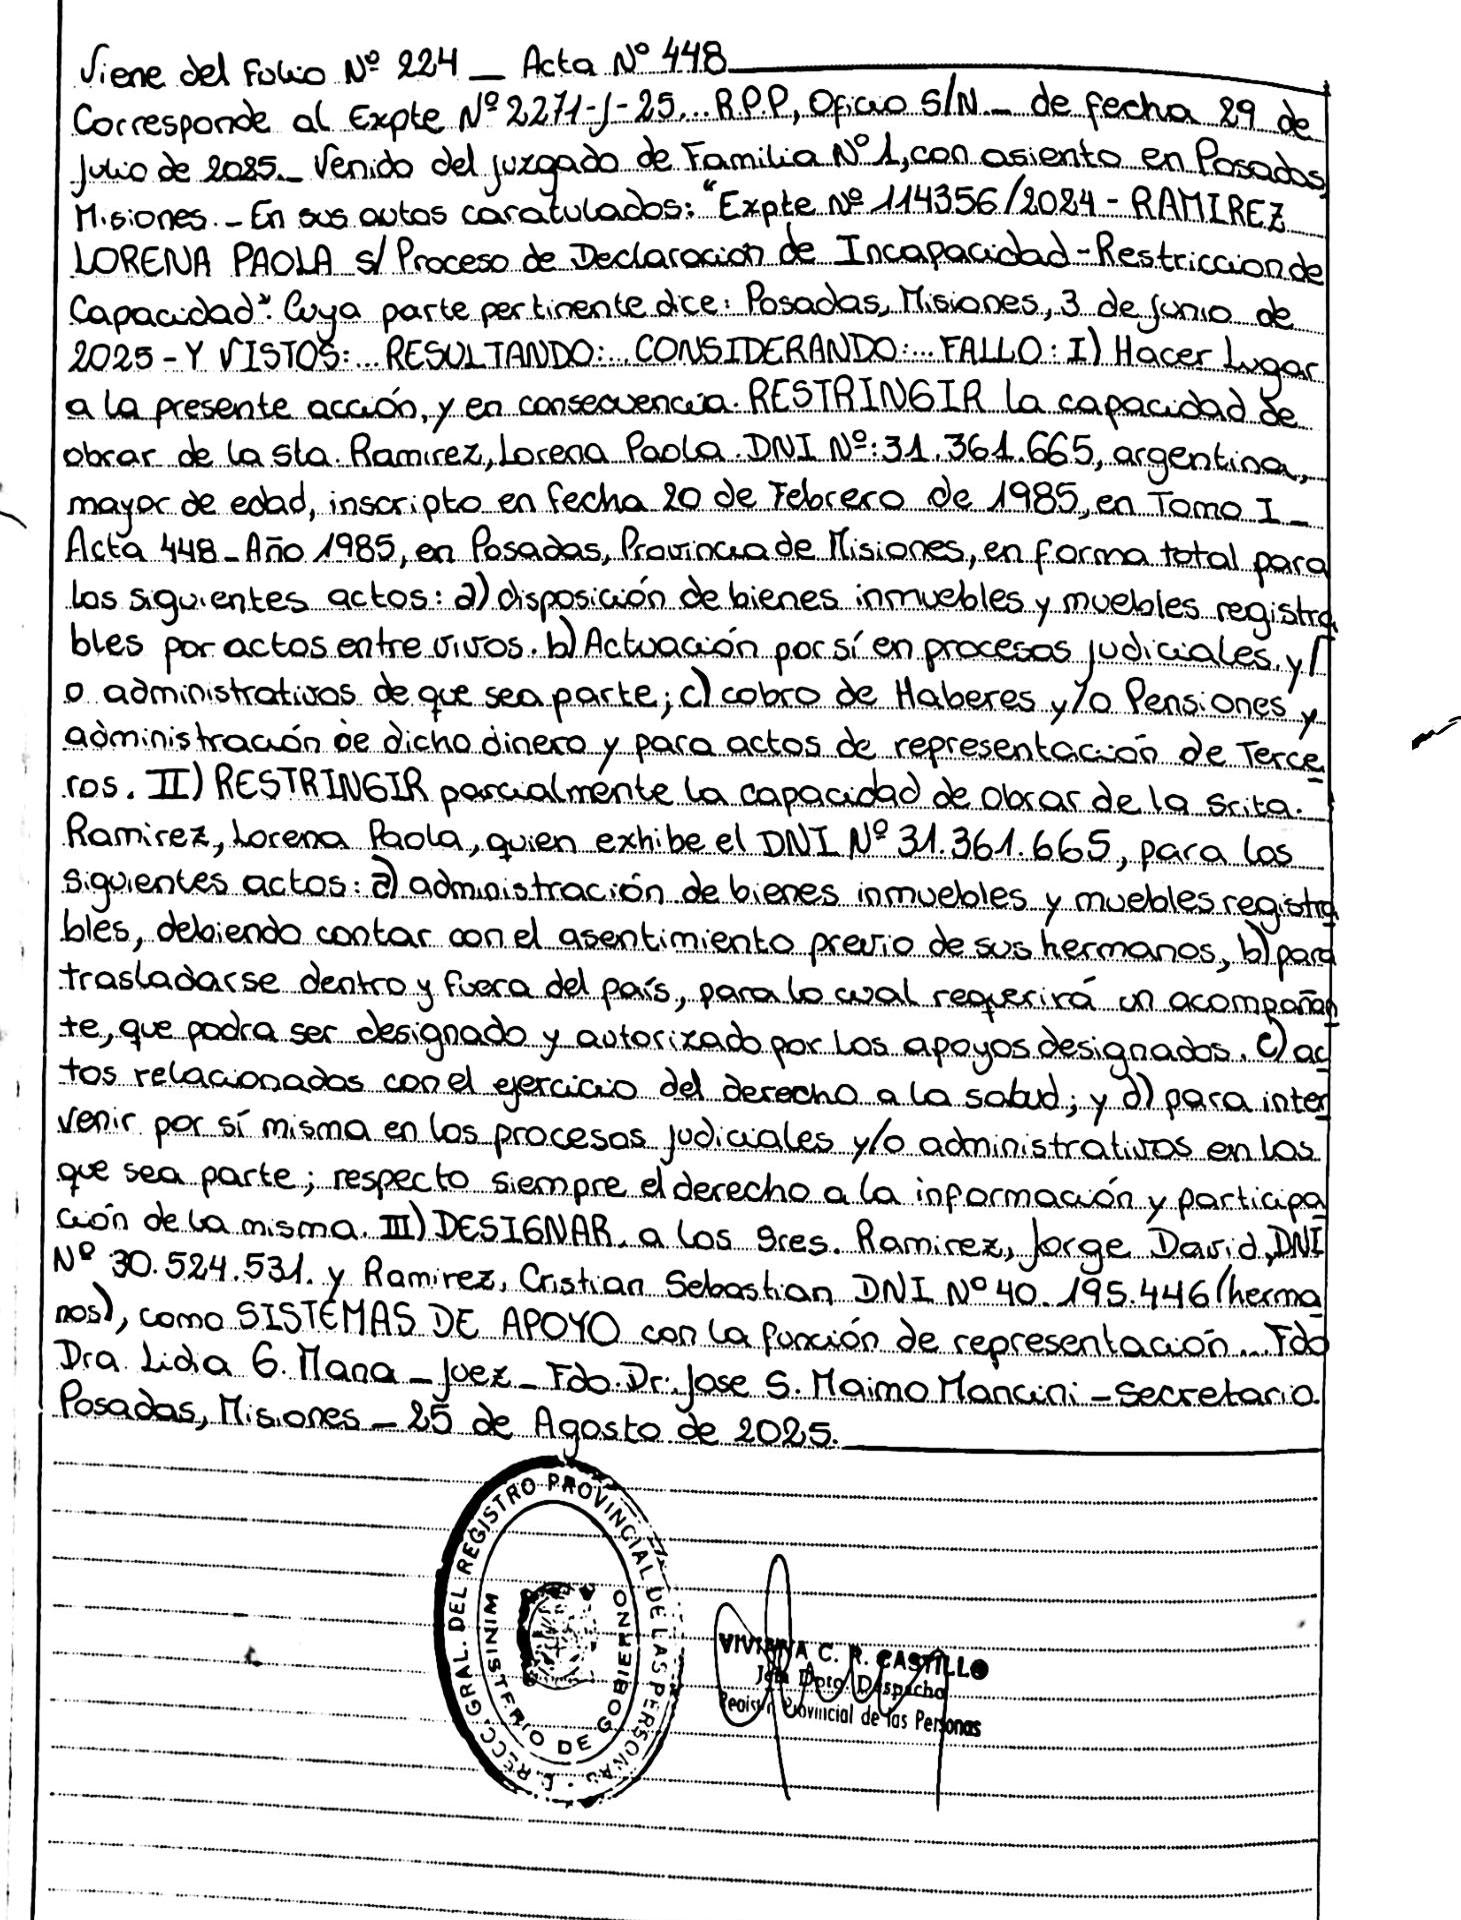 Viene del Folio Nº 224 _ Acta Nº 448
Corresponde al Expte Nº 2271-J-25... R.P.P, Oficio S/N._ de fecha 29 de
Julio de 2025._ Venido del Juzgado de Familia Nº 1, con asiento en Posadas,
Misiones._ En sus autos caratulados: "Expte Nº 114356/2024 - RAMIREZ
LORENA PAOLA s/ Proceso de Declaracion de Incapacidad-Restriccion de
Capacidad". Cuya parte pertinente dice: Posadas, Misiones, 3 de Junio de
2025 - Y VISTOS:... RESULTANDO:... CONSIDERANDO:... FALLO: I) Hacer Lugar
a la presente acción, y en consecuencia. RESTRINGIR la capacidad de
obrar de la sta. Ramirez, Lorena Paola. DNI Nº: 31.361.665, argentina,
mayor de edad, inscripto en fecha 20 de Febrero de 1985, en Tomo I _
Acta 448 _ Año 1985, en Posadas, Provincia de Misiones, en forma total para
los siguientes actos: a) disposición de bienes inmuebles y muebles registra
bles por actos entre vivos. b) Actuación por sí en procesos judiciales y/
o administrativos de que sea parte; c) cobro de Haberes y/o Pensiones y
administración de dicho dinero y para actos de representación de Terce
ros. II) RESTRINGIR parcialmente la capacidad de obrar de la srita.
Ramirez, Lorena Paola, quien exhibe el DNI Nº 31.361.665, para los
siguientes actos: a) administración de bienes inmuebles y muebles registra
bles, debiendo contar con el asentimiento previo de sus hermanos, b) para
trasladarse dentro y fuera del país, para lo cual requerirá un acompañan
te, que podra ser designado y autorizado por los apoyos designados. c) ac
tos relacionados con el ejercicio del derecho a la salud; y d) para inter
venir por sí misma en los procesos judiciales y/o administrativos en los
que sea parte; respecto siempre el derecho a la información y participa
ción de la misma. III) DESIGNAR a los sres. Ramirez, Jorge David, DNI
Nº 30.524.531. y Ramirez, Cristian Sebastian DNI Nº 40.195.446 (herma
nos), como SISTEMAS DE APOYO con la función de representación... Fdo
Dra. Lidia G. Mana _ Juez _ Fdo. Dr. Jose S. Maimo Mancini - Secretario.
Posadas, Misiones _ 25 de Agosto de 2025.
D. RECC. GRAL. DEL REGISTRO PROVINCIAL DE LAS PERSONAS
MINISTERIO DE GOBIERNO
VIVIANA C. R. CASTILLO
Jefa Dpto. Despacho
Registro Provincial de las Personas